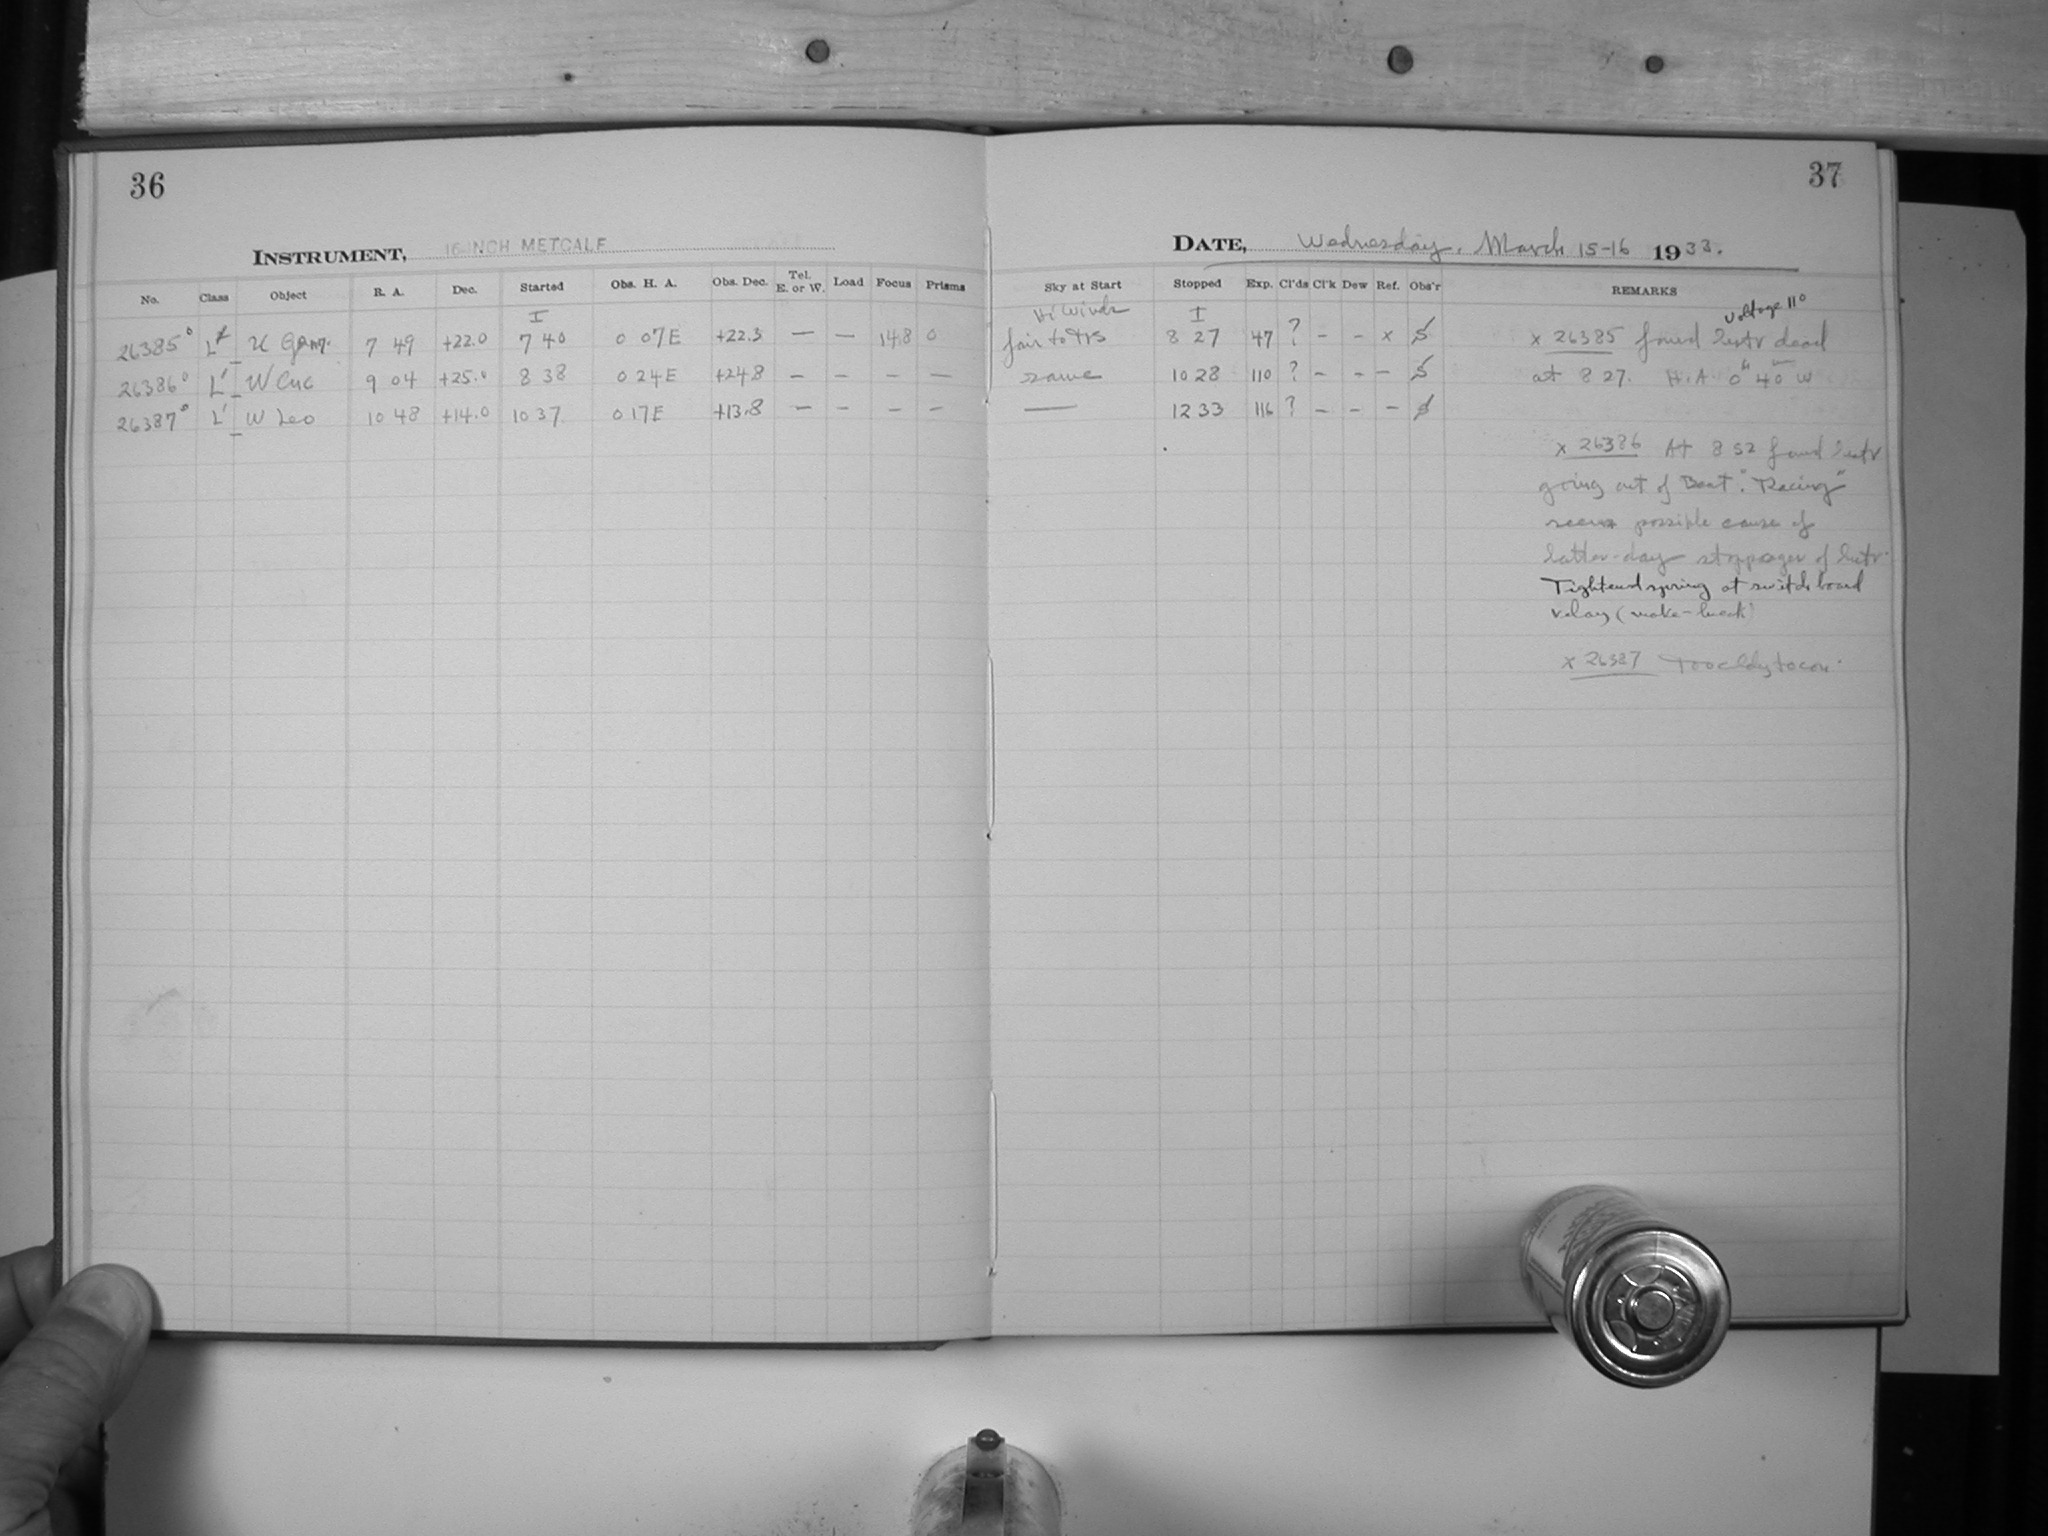 36
37
INSTRUMENT, 16-INCH METCALF
DATE, Wednesday, March 15-16 1933.
No. Class Object R. A. Dec. Started Obs. H. A. Obs. Dec. Tel. E. or W. Load Focus Prisms Sky at Start Stopped Exp. Cl'ds Cl'k Dew Ref. Obs'r REMARKS
I Hi Winds I Voltage 110
26385° L U Gem. 7 49 +22.0 7 40 0 07E +22.3 — — 14.8 0 fair to 8 27 47 ? - - x S x 26385 found instr dead
26386° L' W Cnc 9 04 +25.0 8 38 0 24E +24.8 — — — — same 10 28 110 ? - - - S at 8 27. H.A. 0 40 W
26387° L' W Leo 10 48 +14.0 10 37 0 17E +13.8 — — — — — 12 33 116 ? - - -
x 26386 At 8 52 found instr
going out of Beat. "Racing"
seems possible cause of
latter-day stoppages of instr.
Tightened spring at switchboard
relay (make-break)
x 26387 Too cldy to con.